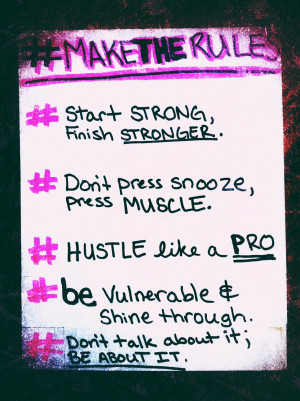 #MAKETHERULES
# Start STRONG,
Finish STRONGER.
# Don't press snooze,
press MUSCLE.
# HUSTLE like a PRO
# be Vulnerable &
Shine through.
# Don't talk about it;
BE ABOUT IT.